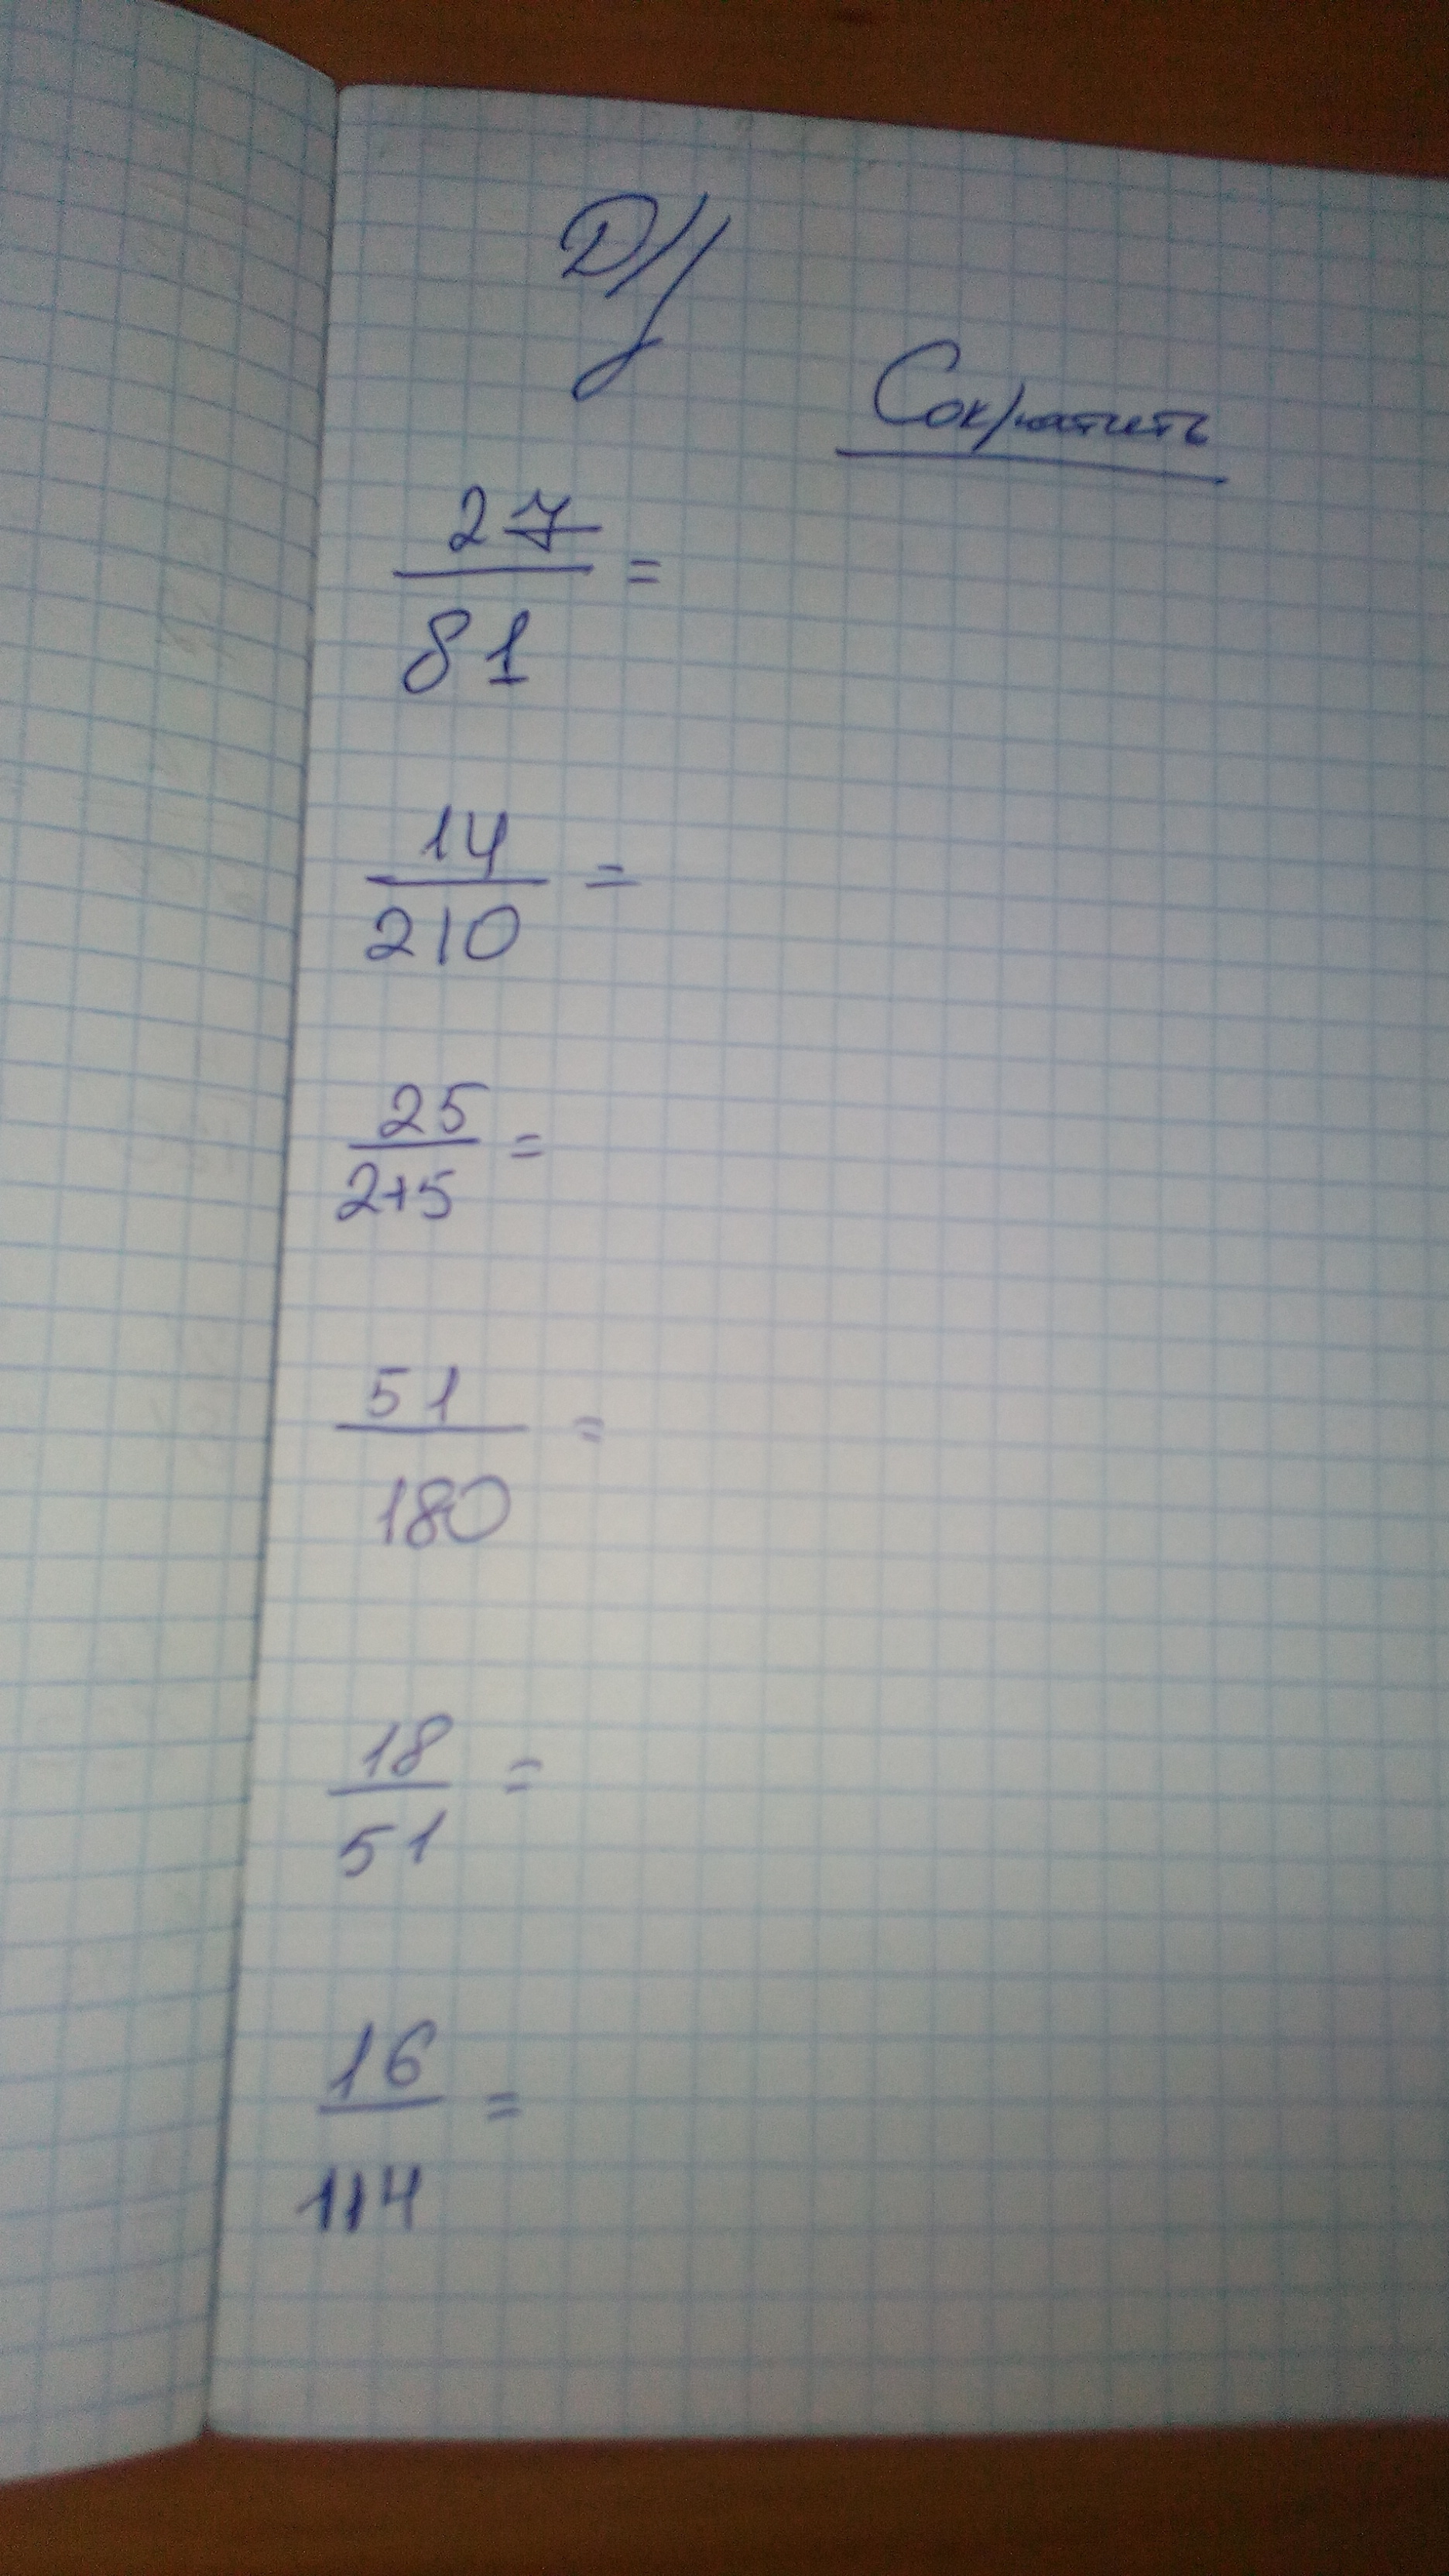 Д/з
Сократить
27
81 =
14
210 =
25
2+5 =
51
180 =
18
51 =
16
114 =